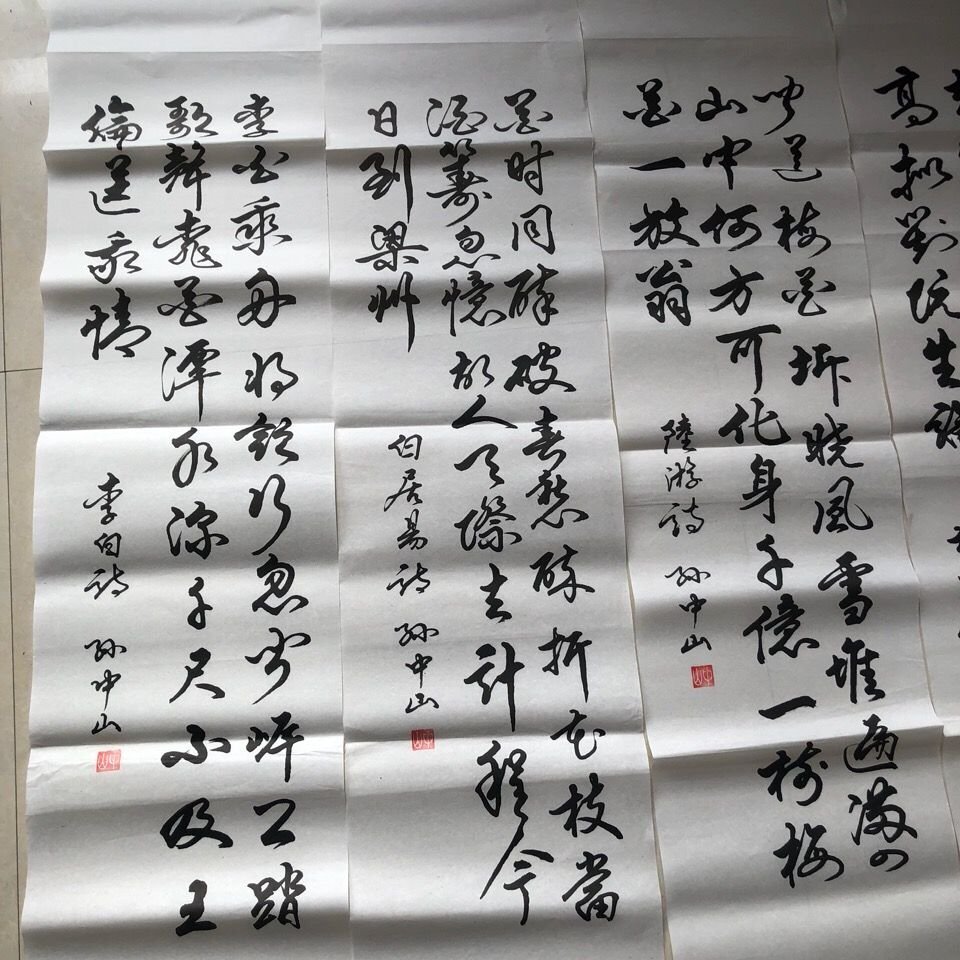 高拟刘阮生
闻道梅花坼晓風雪堆遍满四
山中何方可化身千億一樹梅
花一放翁
陸游诗 孙中山
花時同醉破春愁醉折花枝當
酒籌忽憶故人天際去計程今
日到梁州
伯居易诗 孙中山
李白乘舟将欲行忽闻岸上踏
歌聲桃花潭水深千尺不及王
倫送我情
李伯诗 孙中山